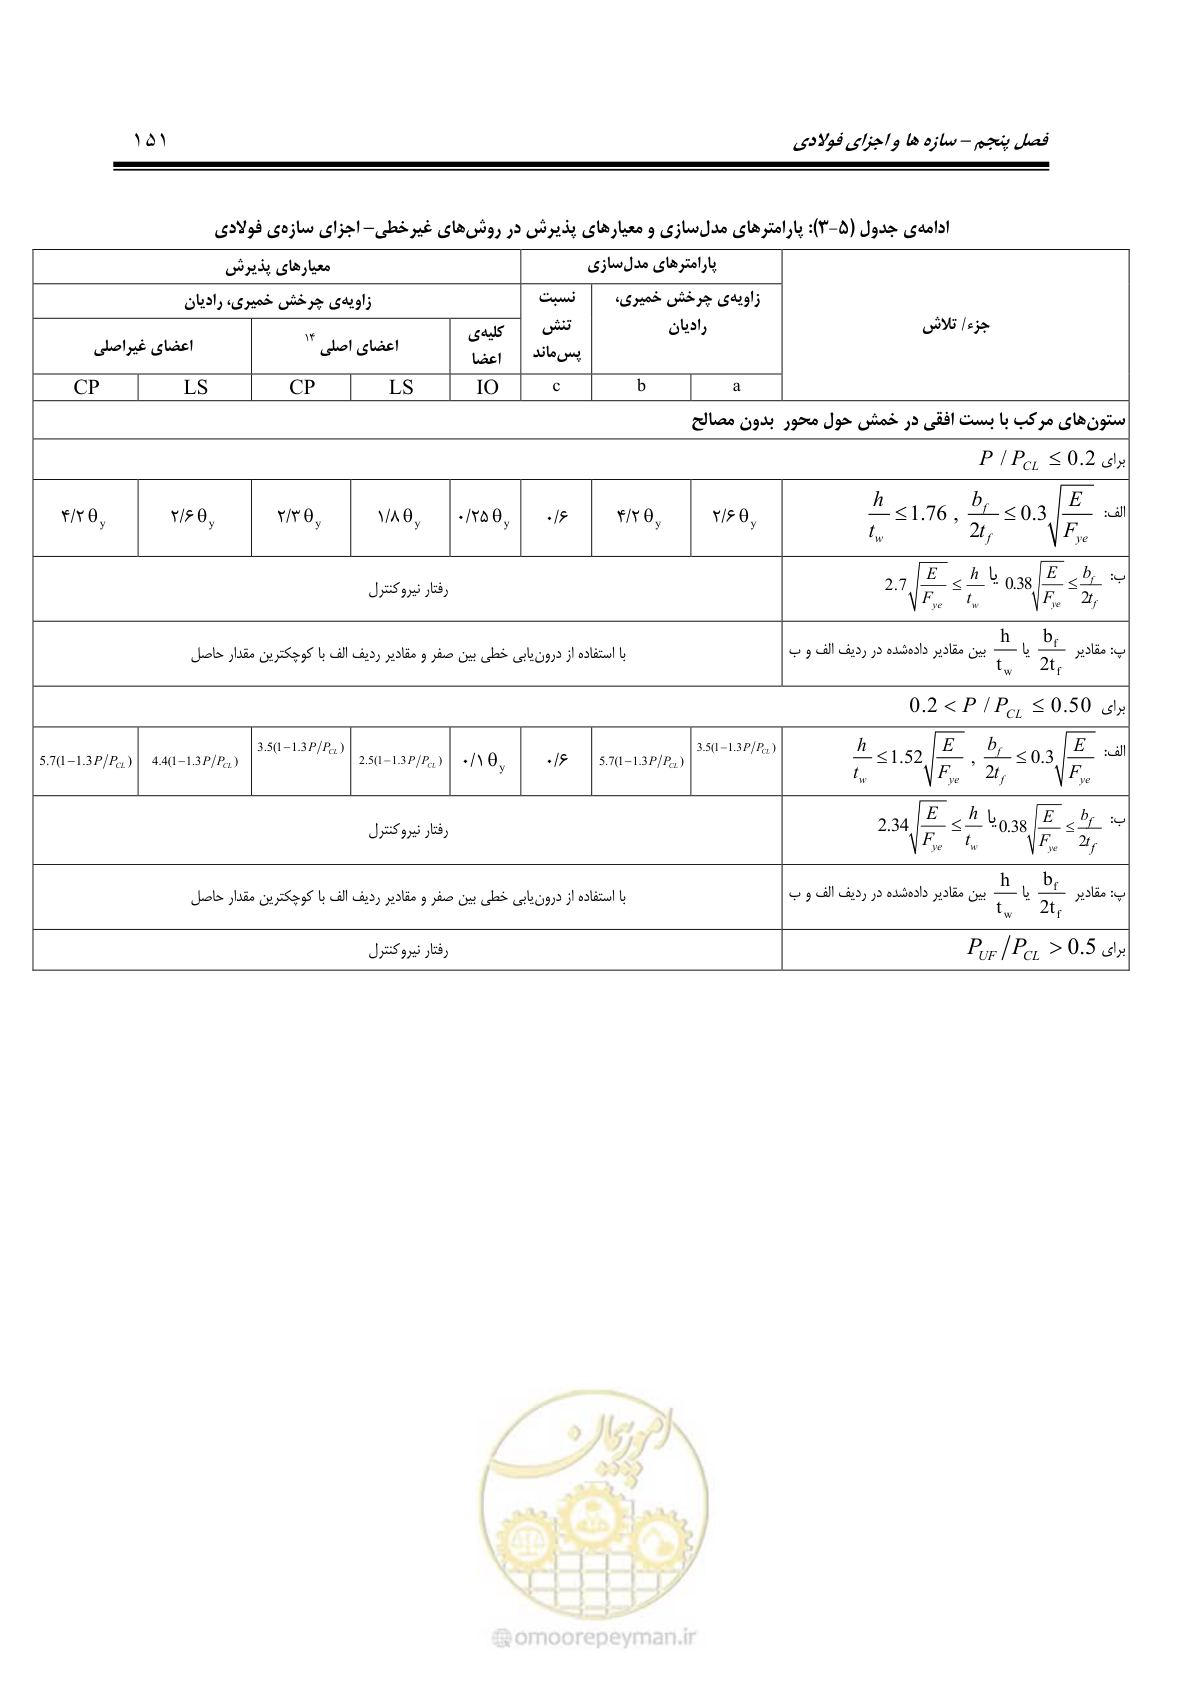 فصل پنجم – سازه ها و اجزای فولادی ۱۵۱
ادامه‌ی جدول (۵-۳): پارامترهای مدل‌سازی و معیارهای پذیرش در روش‌های غیرخطی– اجزای سازه‌ی فولادی
جزء/ تلاش پارامترهای مدل‌سازی معیارهای پذیرش
زاویه‌ی چرخش خمیری، رادیان نسبت تنش پس‌ماند زاویه‌ی چرخش خمیری، رادیان
کلیه‌ی اعضا اعضای اصلی ۱۴ اعضای غیراصلی
a b c IO LS CP LS CP
ستون‌های مرکب با بست افقی در خمش حول محور بدون مصالح
برای P / P_CL ≤ 0.2
الف: h/t_w ≤ 1.76 , b_f/2t_f ≤ 0.3√(E/F_ye) ۲/۶ θ_y ۴/۲ θ_y ۰/۶ ۰/۲۵ θ_y ۱/۸ θ_y ۲/۳ θ_y ۲/۶ θ_y ۴/۲ θ_y
ب: 0.38√(E/F_ye) ≤ b_f/2t_f یا 2.7√(E/F_ye) ≤ h/t_w رفتار نیروکنترل
پ: مقادیر b_f/2t_f یا h/t_w بین مقادیر داده‌شده در ردیف الف و ب با استفاده از درون‌یابی خطی بین صفر و مقادیر ردیف الف با کوچکترین مقدار حاصل
برای 0.2 < P / P_CL ≤ 0.50
الف: h/t_w ≤ 1.52√(E/F_ye) , b_f/2t_f ≤ 0.3√(E/F_ye) 3.5(1−1.3P/P_CL) 5.7(1−1.3P/P_CL) ۰/۶ ۰/۱ θ_y 2.5(1−1.3P/P_CL) 3.5(1−1.3P/P_CL) 4.4(1−1.3P/P_CL) 5.7(1−1.3P/P_CL)
ب: 0.38√(E/F_ye) ≤ b_f/2t_f یا 2.34√(E/F_ye) ≤ h/t_w رفتار نیروکنترل
پ: مقادیر b_f/2t_f یا h/t_w بین مقادیر داده‌شده در ردیف الف و ب با استفاده از درون‌یابی خطی بین صفر و مقادیر ردیف الف با کوچکترین مقدار حاصل
برای P_UF/P_CL > 0.5 رفتار نیروکنترل
امور پیمان
omoorepeyman.ir